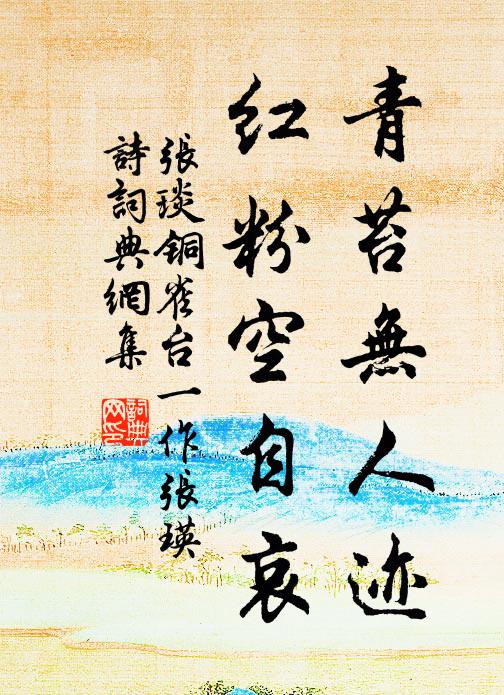 青苔無人迹
红粉空自哀
張琰铜雀台一作張瑛
詩詞典網集